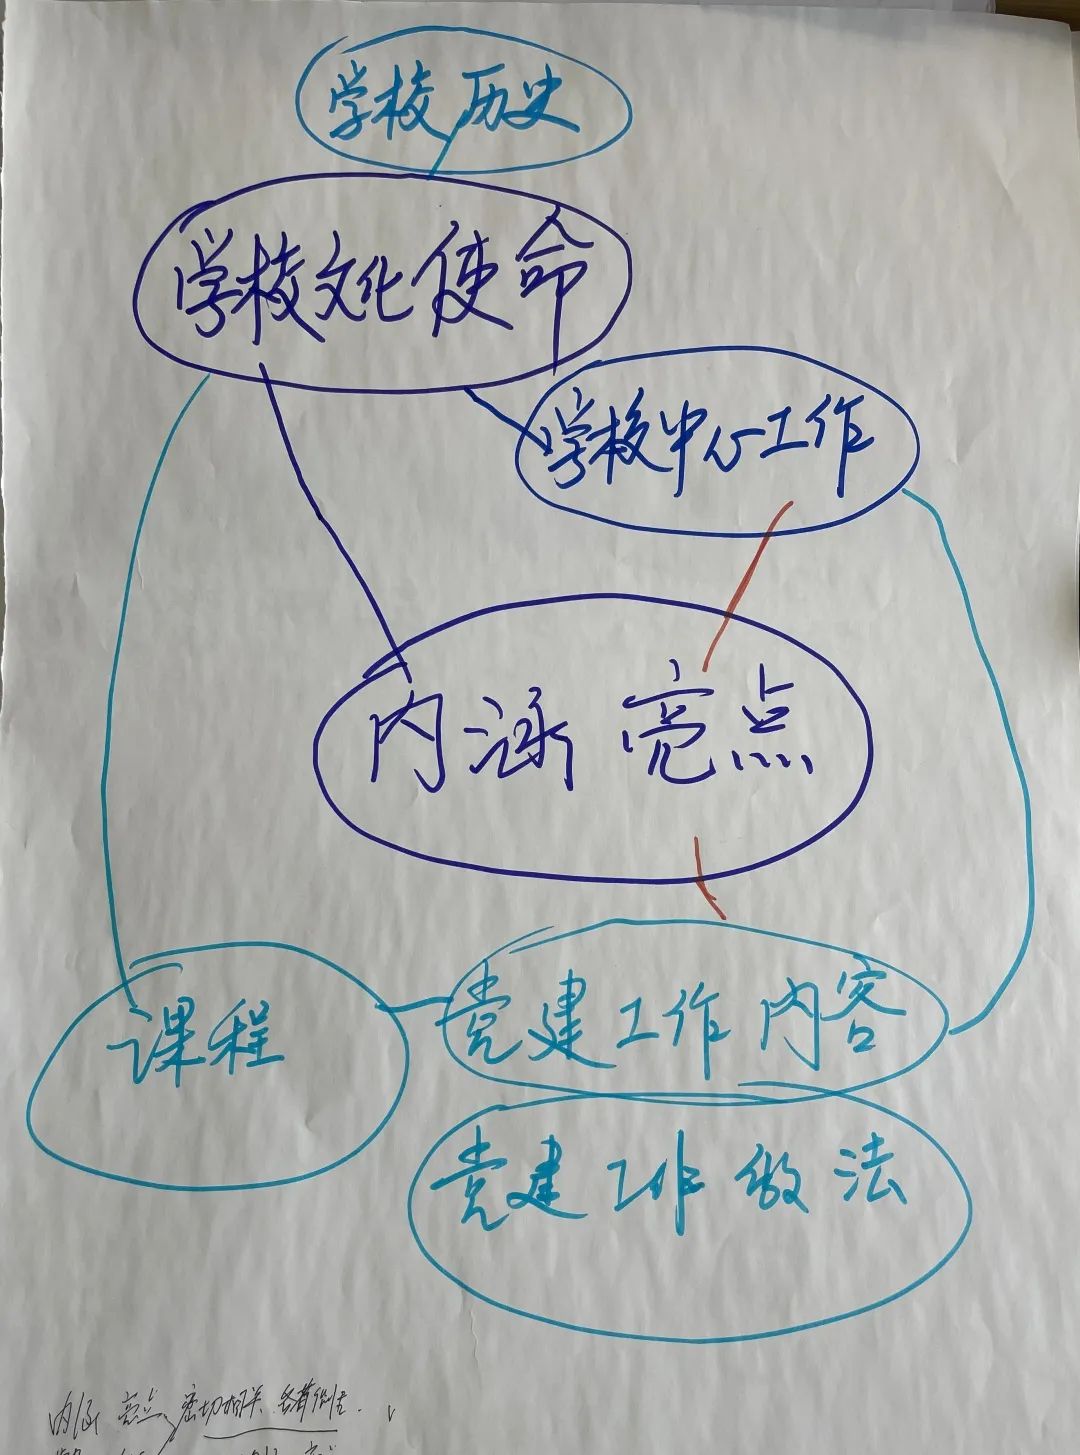 学校历史
学校文化使命
学校中心工作
内涵 亮点
课程
党建工作内容
党建工作做法
内涵 亮点 密切相关 各有侧重.